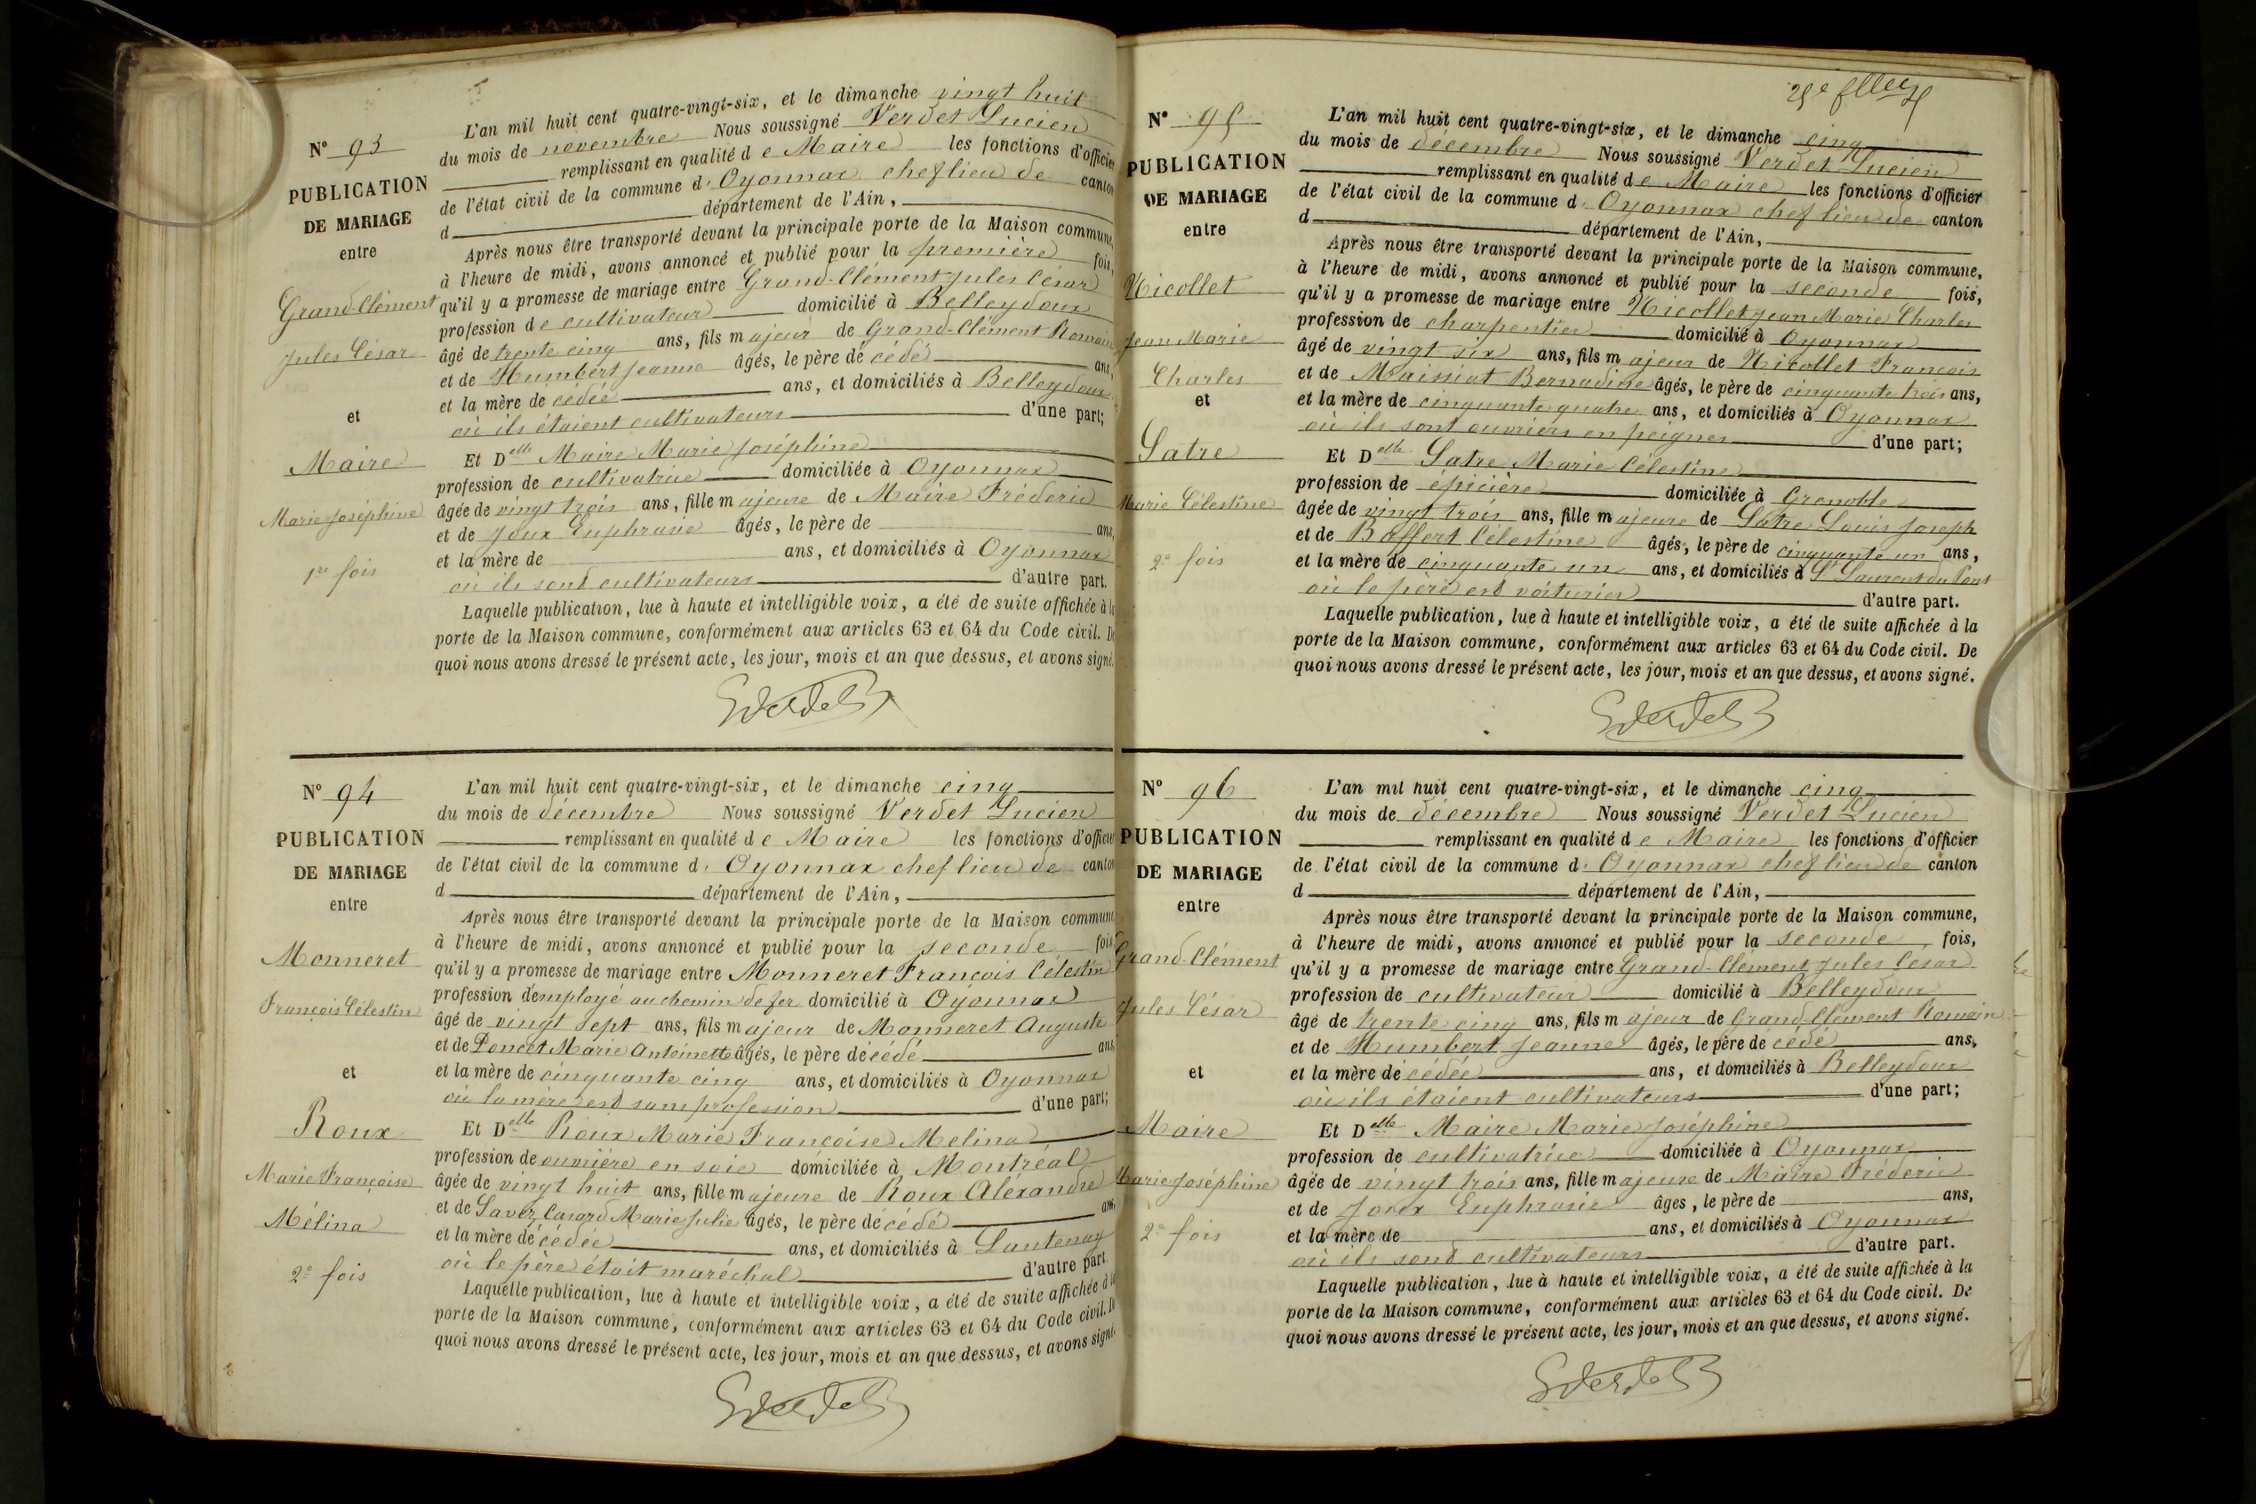 N° 93
PUBLICATION
DE MARIAGE
entre
Grand-Clément
Jules César
et
Maire
Marie Joséphine
1re fois
L'an mil huit cent quatre-vingt-six, et le dimanche vingt huit
du mois de novembre Nous soussigné Verdet Lucien
remplissant en qualité de Maire les fonctions d'officier
de l'état civil de la commune d'Oyonnax chef lieu de canton
d département de l'Ain,
Après nous être transporté devant la principale porte de la Maison commune,
à l'heure de midi, avons annoncé et publié pour la première fois,
qu'il y a promesse de mariage entre Grand-Clément Jules César
profession de cultivateur domicilié à Belleydoux
âgé de trente cinq ans, fils majeur de Grand-Clément Romain
et de Humbert Jeanne âgés, le père décédé ans,
et la mère décédée ans, et domiciliés à Belleydoux
où ils étaient cultivateurs d'une part;
Et Delle Maire Marie Joséphine
profession de cultivatrice domiciliée à Oyonnax
âgée de vingt trois ans, fille majeure de Maire Fréderic
et de Joux Euphrasie âgés, le père de ans,
et la mère de ans, et domiciliés à Oyonnax
où ils sont cultivateurs d'autre part.
Laquelle publication, lue à haute et intelligible voix, a été de suite affichée à la
porte de la Maison commune, conformément aux articles 63 et 64 du Code civil. De
quoi nous avons dressé le présent acte, les jour, mois et an que dessus, et avons signé.
N° 94
PUBLICATION
DE MARIAGE
entre
Monneret
François Célestin
et
Roux
Marie Françoise
Mélina
2e fois
L'an mil huit cent quatre-vingt-six, et le dimanche cinq
du mois de décembre Nous soussigné Verdet Lucien
remplissant en qualité de Maire les fonctions d'officier
de l'état civil de la commune d'Oyonnax chef lieu de canton
d département de l'Ain,
Après nous être transporté devant la principale porte de la Maison commune
à l'heure de midi, avons annoncé et publié pour la seconde fois
qu'il y a promesse de mariage entre Monneret François Célestin
profession d'employé au chemin de fer domicilié à Oyonnax
âgé de vingt sept ans, fils majeur de Monneret Auguste
et de Poncet Marie Antoinette âgés, le père décédé ans,
et la mère de cinquante cinq ans, et domiciliés à Oyonnax
où la mère est sans profession d'une part;
Et Delle Roux Marie Françoise Melina
profession de ouvrière en soie domiciliée à Montréal
âgée de vingt huit ans, fille majeure de Roux Aléxandre
et de Marie Julie âgés, le père décédé ans,
et la mère décédée ans, et domiciliés à Lantenay
où le père était maréchal d'autre part.
Laquelle publication, lue à haute et intelligible voix, a été de suite affichée à la
porte de la Maison commune, conformément aux articles 63 et 64 du Code civil. De
quoi nous avons dressé le présent acte, les jour, mois et an que dessus, et avons signé.
N° 95
PUBLICATION
DE MARIAGE
entre
Nicollet
Jean Marie
Charles
et
Satre
Marie Célestine
2e fois
L'an mil huit cent quatre-vingt-six, et le dimanche cinq
du mois de décembre Nous soussigné Verdet Lucien
remplissant en qualité de Maire les fonctions d'officier
de l'état civil de la commune d'Oyonnax chef lieu de canton
d département de l'Ain,
Après nous être transporté devant la principale porte de la Maison commune,
à l'heure de midi, avons annoncé et publié pour la seconde fois,
qu'il y a promesse de mariage entre Nicollet Jean Marie Charles
profession de charpentier domicilié à Oyonnax
âgé de vingt six ans, fils majeur de Nicollet François
et de Maissiat Bernadine âgés, le père de cinquante trois ans,
et la mère de cinquante quatre ans, et domiciliés à Oyonnax
où ils sont ouvriers en peignes d'une part;
Et Delle Satre Marie Célestine
profession de épicière domiciliée à Grenoble
âgée de vingt trois ans, fille majeure de Satre Louis Joseph
et de Boffert Célestine âgés, le père de cinquante un ans,
et la mère de cinquante un ans, et domiciliés à St Laurent du Pont
où le père est voiturier d'autre part.
Laquelle publication, lue à haute et intelligible voix, a été de suite affichée à la
porte de la Maison commune, conformément aux articles 63 et 64 du Code civil. De
quoi nous avons dressé le présent acte, les jour, mois et an que dessus, et avons signé.
N° 96
PUBLICATION
DE MARIAGE
entre
Grand-Clément
Jules César
et
Maire
Marie Joséphine
2e fois
L'an mil huit cent quatre-vingt-six, et le dimanche cinq
du mois de décembre Nous soussigné Verdet Lucien
remplissant en qualité de Maire les fonctions d'officier
de l'état civil de la commune d'Oyonnax chef lieu de canton
d département de l'Ain,
Après nous être transporté devant la principale porte de la Maison commune,
à l'heure de midi, avons annoncé et publié pour la seconde fois,
qu'il y a promesse de mariage entre Grand-Clément Jules César
profession de cultivateur domicilié à Belleydoux
âgé de trente cinq ans, fils majeur de Grand Clément Romain
et de Humbert Jeanne âgés, le père décédé ans,
et la mère décédée ans, et domiciliés à Belleydoux
où ils étaient cultivateurs d'une part;
Et Delle Maire Marie Joséphine
profession de cultivatrice domiciliée à Oyonnax
âgée de vingt trois ans, fille majeure de Maire Fréderic
et de Joux Euphrasie âges, le père de ans,
et la mère de ans, et domiciliés à Oyonnax
où ils sont cultivateurs d'autre part.
Laquelle publication, lue à haute et intelligible voix, a été de suite affichée à la
porte de la Maison commune, conformément aux articles 63 et 64 du Code civil. De
quoi nous avons dressé le présent acte, les jour, mois et an que dessus, et avons signé.